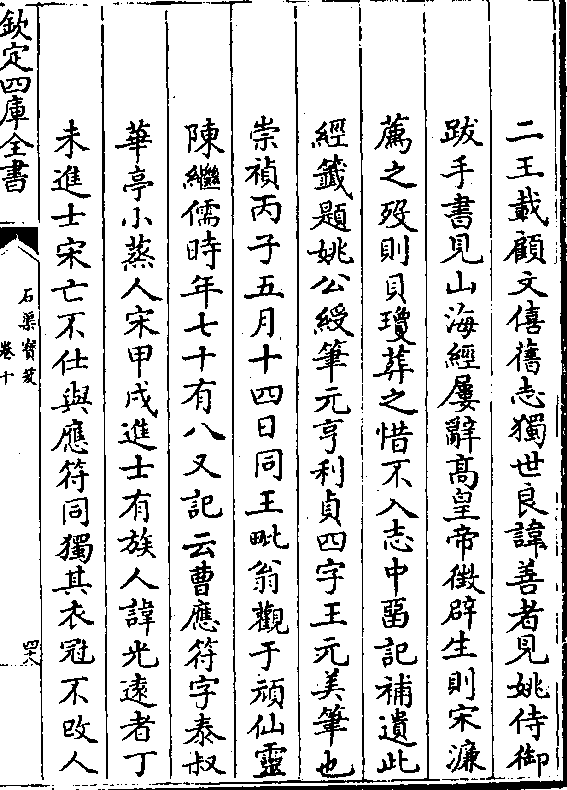 二王載顧文僖舊志獨世良諱善者見姚侍御
跋手書見山海經屢辭髙皇帝徴辟生則宋濂
薦之殁則貝瓊葬之惜不入志中畱記補遺此
經籤題姚公綬筆元亨利貞四字王元美筆也
崇禎丙子五月十四日同王毗翁觀于頑仙靈
陳繼儒時年七十有八又記云曹應符字泰叔
華亭小蒸人宋甲戌進士有族人諱光遠者丁
未進士宋亡不仕與應符同獨其衣冠不改人
欽定四庫全書
石渠寶笈
卷十